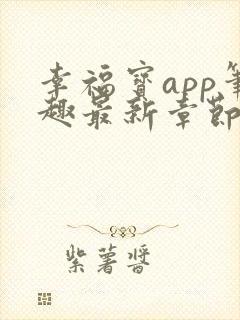 幸福宝app笔
趣最新章节
紫薯酱